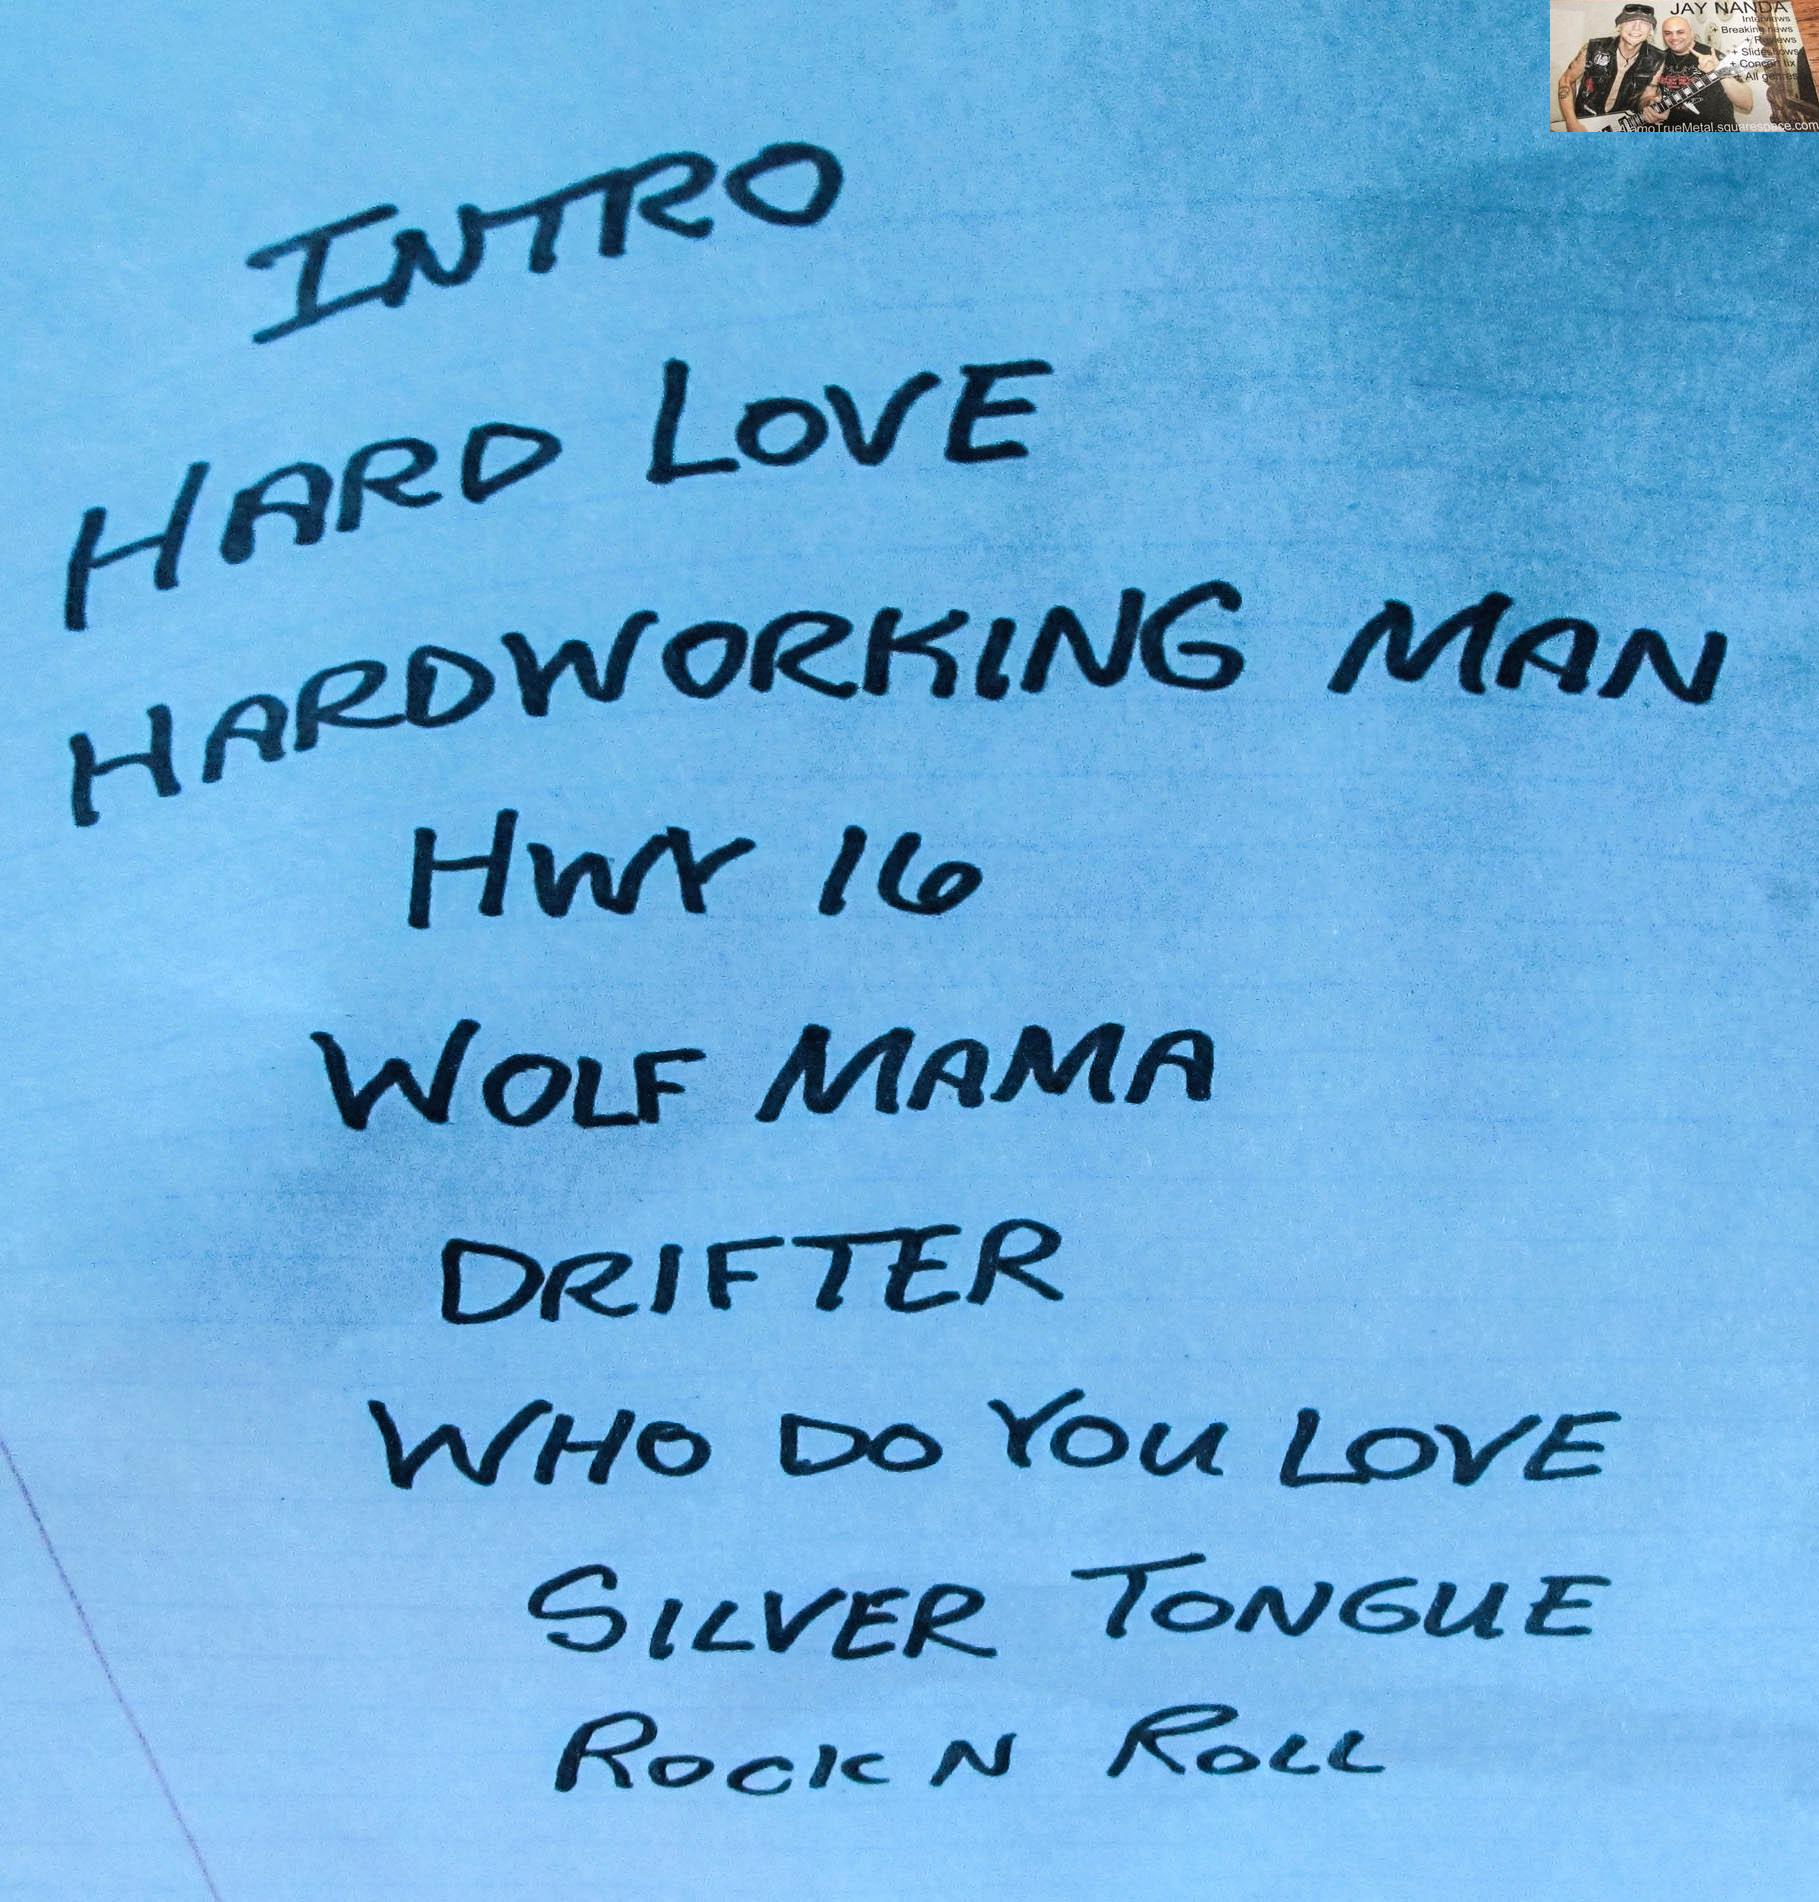 JAY NANDA
Interviews
+ Breaking news
+ Reviews
+ Slideshows
+ Concert pix
+ All genres
AlamoTrueMetal.squarespace.com
INTRO
HARD LOVE
HARDWORKING MAN
HWY 16
WOLF MAMA
DRIFTER
WHO DO YOU LOVE
SILVER TONGUE
ROCK N ROLL